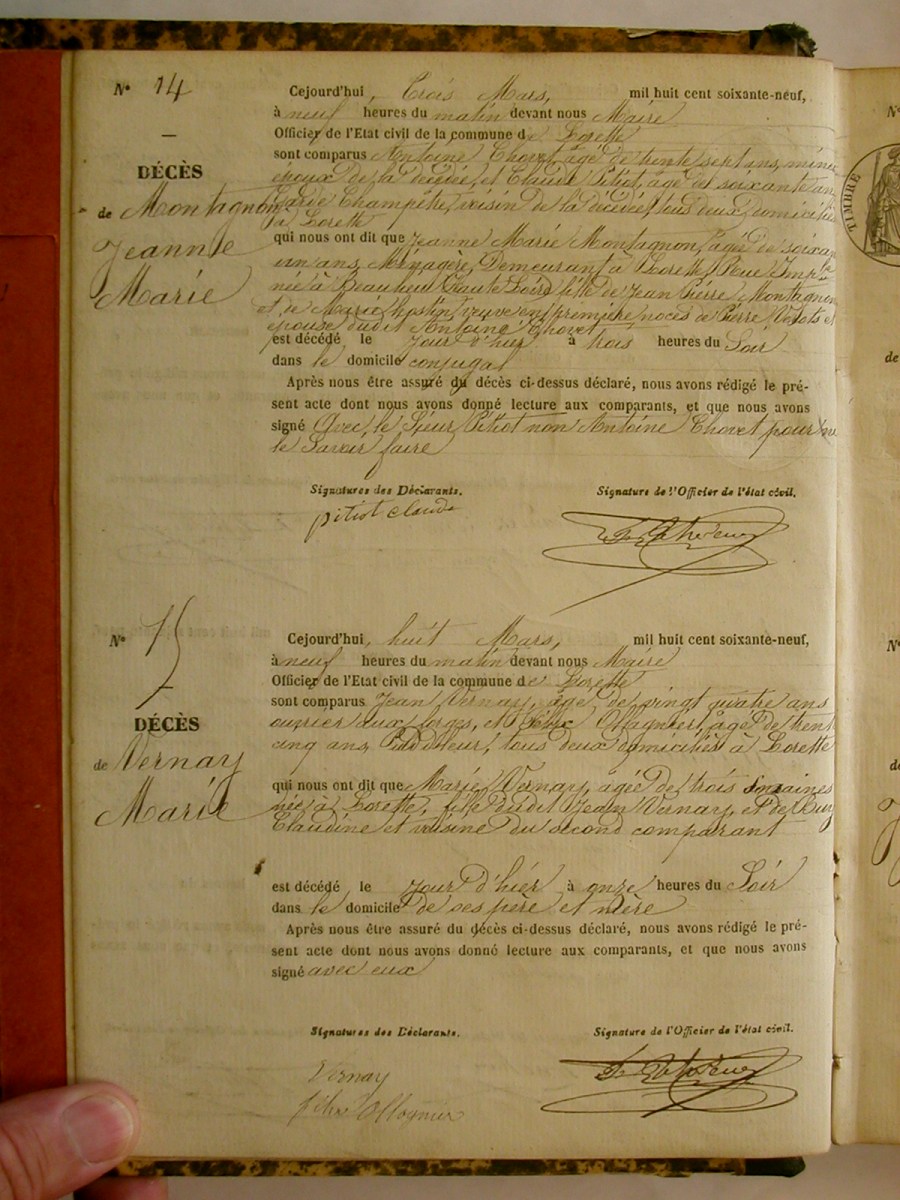 N° 14
DÉCÈS
de Montagnon
Jeanne
Marie
Cejourd'hui, trois Mars, mil huit cent soixante-neuf,
à neuf heures du matin devant nous Maire
Officier de l'Etat civil de la commune de Lorette
sont comparus Antoine Chovet, âgé de trente sept ans, mineur
époux de la décédée, et Claude Pitiot, âgé de soixante ans
Garde Champêtre, voisin de la décédée, tous deux domiciliés
à Lorette
qui nous ont dit que Jeanne Marie Montagnon, âgée de soixante
un ans, Ménagère, Demeurant à Lorette, Rue
née à Beaulieu Haute Loire fille de Jean Pierre Montagnon
et de Marie veuve en première noces de Pierre et
épouse dudit Antoine Chovet
est décédé le Jour d'hier à trois heures du Soir
dans le domicile conjugal
Après nous être assuré du décès ci-dessus déclaré, nous avons rédigé le pré-
sent acte dont nous avons donné lecture aux comparants, et que nous avons
signé Avec le Sieur Pitiot non Antoine Chovet pour ne
le Savoir faire
Signatures des Déclarants. Signature de l'Officier de l'état civil.
pitiot claude
N° 15
DÉCÈS
de Vernay
Marie
Cejourd'hui, huit Mars, mil huit cent soixante-neuf,
à neuf heures du matin devant nous Maire
Officier de l'Etat civil de la commune de Lorette
sont comparus Jean Vernay, âgé de vingt quatre ans
ouvrier aux forges, et âgé de trente
cinq ans, Puddleur, tous deux domiciliés à Lorette
qui nous ont dit que Marie Vernay, âgée de trois Semaines
née à Lorette, fille dudit Jean Vernay, et de
Claudine et voisine du second comparant
est décédé le Jour d'hier à onze heures du Soir
dans le domicile de ses père et mère
Après nous être assuré du décès ci-dessus déclaré, nous avons rédigé le pré-
sent acte dont nous avons donné lecture aux comparants, et que nous avons
signé avec eux
Signatures des Déclarants. Signature de l'Officier de l'état civil.
Vernay
TIMBRE
N°
de
N°
de